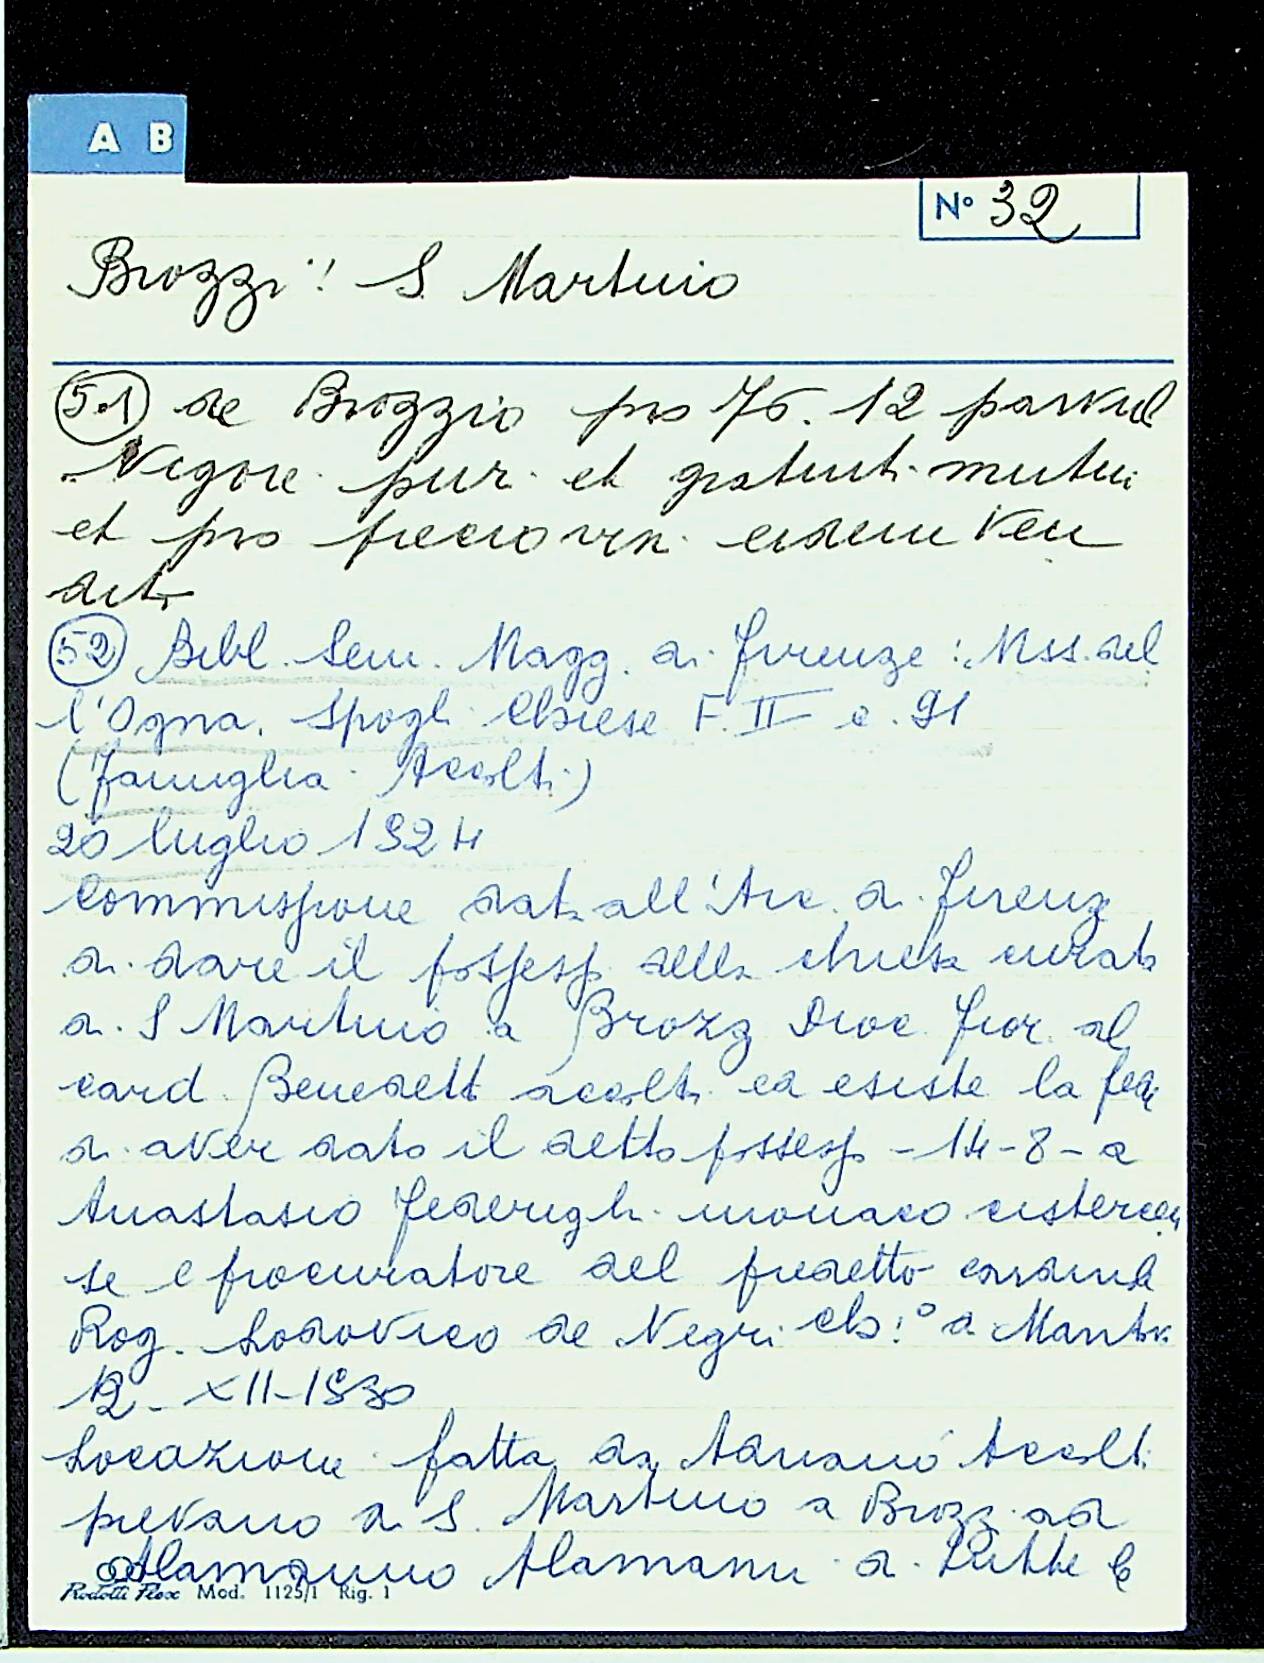 A B
N° 32
Brozzi: S. Martino
51 de Brozzio pro 76. 12 parvul
Vigore pur. et gratuit. mutui
et pro eidem ven
dit.
52 Bibl. Sem. Magg. di Firenze: Mss. del
l'Ogna. Spogli Chiese F. II c. 91
(Famiglia Accolti)
20 luglio 1524
Commissione data all'Arc. di Firenz
di dare il possess della chiesa curata
di S Martino a Brozzi Dioc. fior. al
card. Benedett accolti ed esiste la fede
di aver dato il detto possess - 14-8- a
Anastasio Federighi monaco cistercen
se e procuratore del predetto cardinale
Rog. Lodovico de Negri ch:° di Mantova
12-XII-1530
Locazione fatta da Adriano Accolti
pievano di S. Martino a Brozzi ad
Alamanno Alamanni di tutte le
Prodotti Flex Mod. 1125/1 Rig. 1